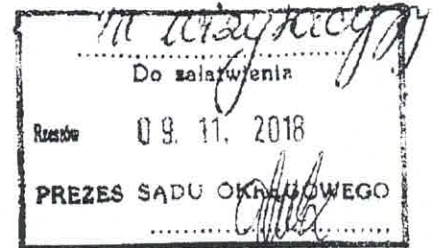 Do załatwienia
Rzeszów 09. 11. 2018
PREZES SĄDU OKRĘGOWEGO